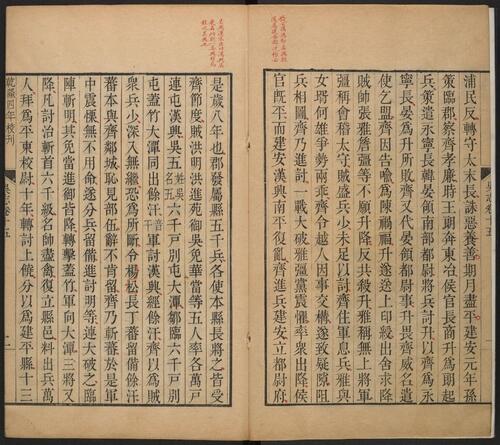 浦民反轉守太末長誅惡養善期月盡平建安元年孫
策臨郡察齊孝廉時王朗奔東冶侯官長商升爲朗起
兵策遣永寧長韓晏領南部都尉將兵討升以齊爲永
寧長晏爲升所敗齊又代晏領都尉事升畏齊威名遣
使乞盟齊因告喻爲陳禍福升遂送上印綬出舍求降
賊帥張雅詹彊等不願升降反共殺升雅稱無上將軍
彊稱會稽太守賊盛兵少未足以討齊住軍息兵雅與
女壻何雄爭勢兩乖齊令越人因事交構遂致疑隙阻
兵相圖齊乃進討一戰大破雅彊黨震懼率衆出降侯
官旣平而建安漢興南平復亂齊進兵建安立都尉府
是歲八年也郡發屬縣五千兵各使本縣長將之皆受
齊節度賊洪明洪進苑御吳免華當等五人率各萬戶
連屯漢興吳五姓吳名五六千戶別屯大潭鄒臨六千戶別
屯蓋竹大潭同出餘汗音干軍討漢興經餘汗齊以爲賊
衆兵少深入無繼恐爲所斷令楊松長丁蕃留備餘汗
蕃本與齊鄰城恥見部伍辭不肯留齊乃斬蕃於是軍
中震慄無不用命遂分兵留備進討明等連大破之臨
陣斬明其免當進御皆降轉擊蓋竹軍向大潭三將又
降凡討治斬首六千級名帥盡禽復立縣邑料出兵萬
人拜爲平東校尉十年轉討上饒分以爲建平縣十三
乾隆四年校刊
吳志卷十五